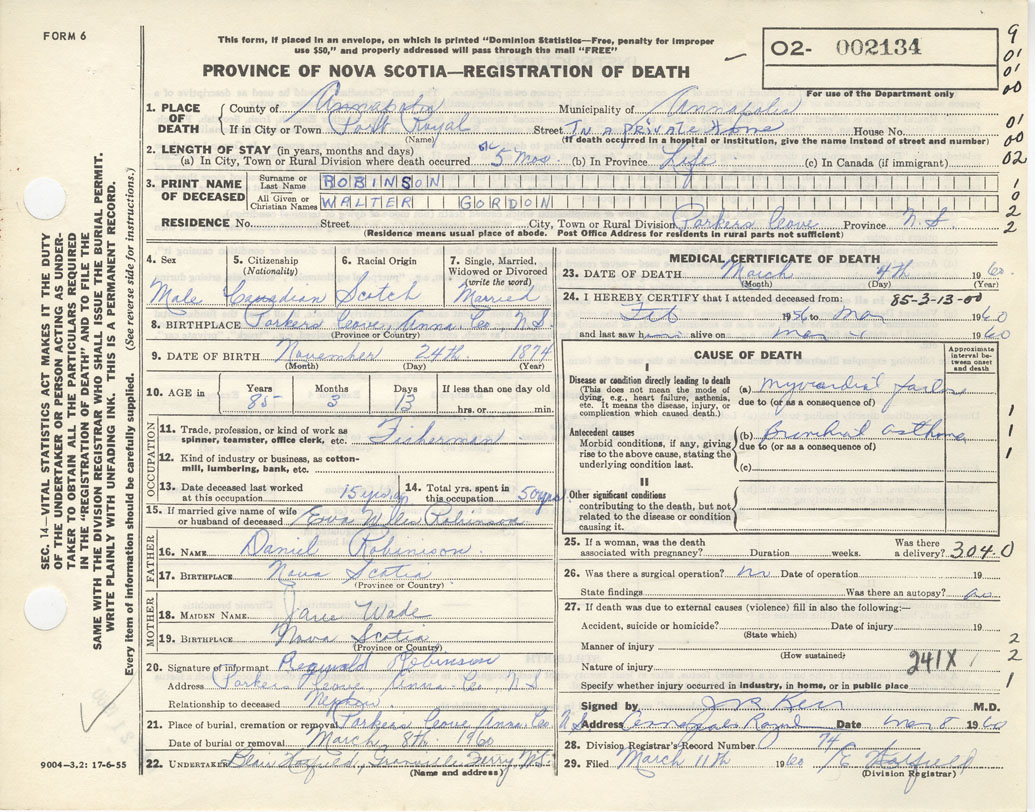 FORM 6
This form, if placed in an envelope, on which is printed "Dominion Statistics—Free, penalty for improper
use $50," and properly addressed will pass through the mail "FREE"
PROVINCE OF NOVA SCOTIA—REGISTRATION OF DEATH
02- 002134
For use of the Department only
9
01
01
00
01
00
02
1
0
2
2
1. PLACE OF DEATH
County of Annapolis Municipality of Annapolis
If in City or Town Port Royal Street In a private Home House No.
(Name) (If death occurred in a hospital or institution, give the name instead of street and number)
2. LENGTH OF STAY (in years, months and days)
(a) In City, Town or Rural Division where death occurred 5 mos. (b) In Province Life (c) In Canada (if immigrant)
3. PRINT NAME OF DECEASED
Surname or Last Name ROBINSON
All Given or Christian Names WALTER GORDON
RESIDENCE No. Street City, Town or Rural Division Parkers Cove Province N.S.
(Residence means usual place of abode. Post Office Address for residents in rural parts not sufficient)
4. Sex Male
5. Citizenship (Nationality) Canadian
6. Racial Origin Scotch
7. Single, Married, Widowed or Divorced (write the word) Married
8. BIRTHPLACE Parkers Cove, Anna Co., N.S.
(Province or Country)
9. DATE OF BIRTH November 24th 1874
(Month) (Day) (Year)
10. AGE in Years 85 Months 3 Days 13 If less than one day old hrs. or min.
OCCUPATION
11. Trade, profession, or kind of work as spinner, teamster, office clerk, etc. Fisherman
12. Kind of industry or business, as cotton-mill, lumbering, bank, etc.
13. Date deceased last worked at this occupation 15 yrs. ago
14. Total yrs. spent in this occupation 50 yrs
15. If married give name of wife or husband of deceased Robinson
FATHER
16. NAME Daniel Robinson
17. BIRTHPLACE Nova Scotia
(Province or Country)
MOTHER
18. MAIDEN NAME Wade
19. BIRTHPLACE Nova Scotia
(Province or Country)
20. Signature of informant Reginald Robinson
Address Parkers Cove, Anna Co., N.S
Relationship to deceased Nephew
21. Place of burial, cremation or removal Parkers Cove Anna. Co. N.S
Date of burial or removal March 8th. 1960
22. UNDERTAKER Granville Ferry N.S.
(Name and address)
MEDICAL CERTIFICATE OF DEATH
23. DATE OF DEATH March 4th 1960
(Month) (Day) (Year)
24. I HEREBY CERTIFY that I attended deceased from: 85-3-13-00
Feb 19 to Mar 1960
and last saw h alive on 1960
CAUSE OF DEATH
Approximate interval between onset and death
I
Disease or condition directly leading to death
(This does not mean the mode of dying, e.g., heart failure, asthenia, etc. It means the disease, injury, or complication which caused death.)
(a) Myocardial failure
due to (or as a consequence of)
Antecedent causes
Morbid conditions, if any, giving rise to the above cause, stating the underlying condition last.
(b) Bronchial asthma
due to (or as a consequence of)
(c)
1
1
1
II
Other significant conditions
contributing to the death, but not related to the disease or condition causing it.
25. If a woman, was the death associated with pregnancy? Duration weeks. Was there a delivery? 3040
26. Was there a surgical operation? no Date of operation 19
State findings Was there an autopsy? no
27. If death was due to external causes (violence) fill in also the following:—
Accident, suicide or homicide? Date of injury 19
(State which)
Manner of injury
(How sustained)
Nature of injury 241X
Specify whether injury occurred in industry, in home, or in public place
2
2
1
Signed by Kerr M.D.
Address Annapolis Royal Date Mar 8 1960
28. Division Registrar's Record Number 74
29. Filed March 11th 1960
(Division Registrar)
SEC. 14—VITAL STATISTICS ACT MAKES IT THE DUTY
OF THE UNDERTAKER OR PERSON ACTING AS UNDER-
TAKER TO OBTAIN ALL THE PARTICULARS REQUIRED
IN THE "REGISTRATION OF DEATH" AND TO FILE THE
SAME WITH THE DIVISION REGISTRAR WHO SHALL ISSUE THE BURIAL PERMIT.
WRITE PLAINLY WITH UNFADING INK. THIS IS A PERMANENT RECORD.
Every item of information should be carefully supplied. (See reverse side for instructions.)
9004—3.2: 17-6-55